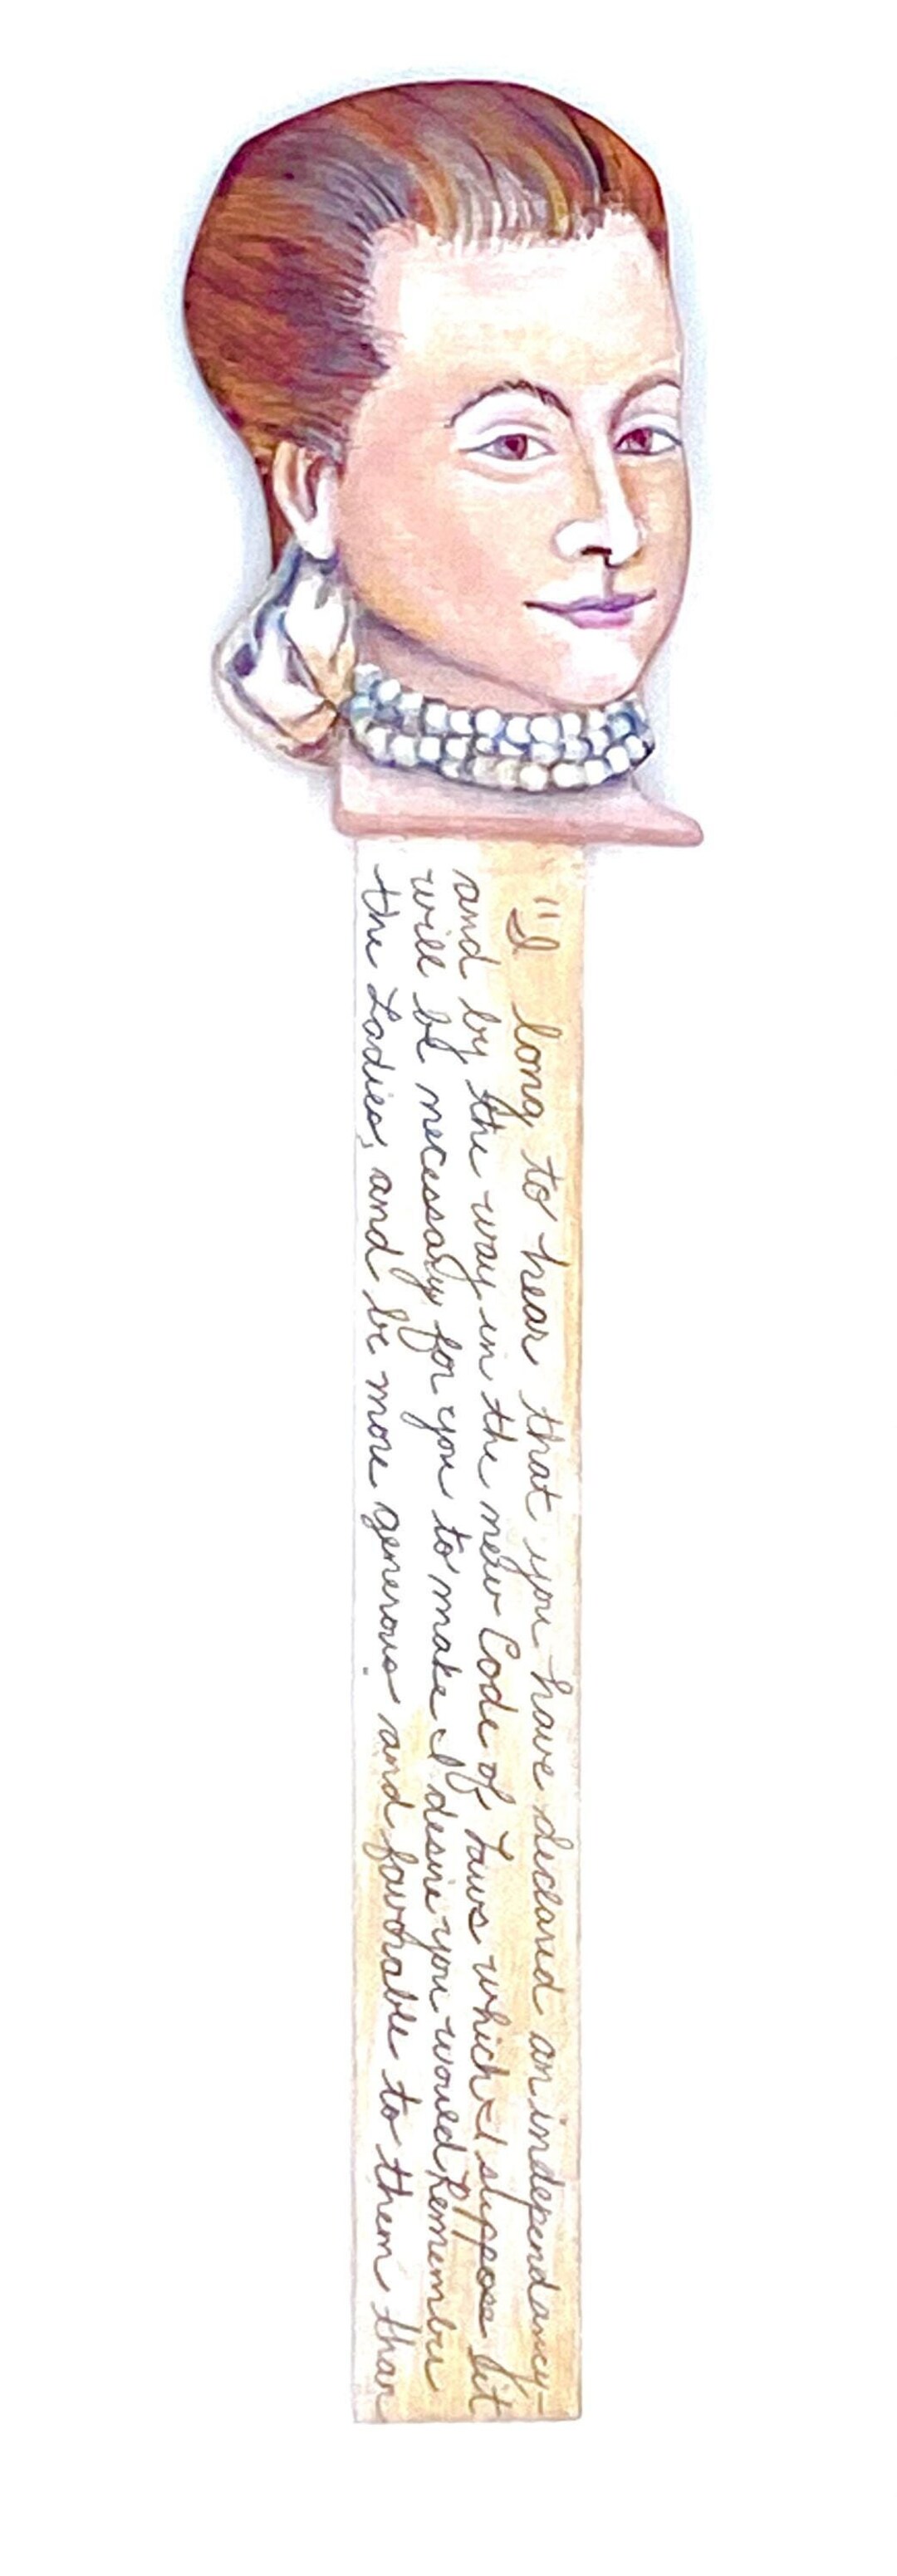 "I long to hear that you have declared an independancy-
and by the way in the new Code of Laws which I suppose it
will be necessary for you to make I desire you would Remember
the Ladies, and be more generous and favorable to them than